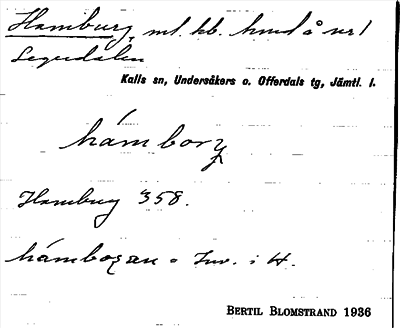 Hamburg, ml. kb. hmd å nr 1
Segerdalen
Kalls sn, Undersåkers o. Offerdals tg, Jämtl. l.
hámborg
Hamburg 358.
hámbogan = Inv. i H.
BERTIL BLOMSTRAND 1936